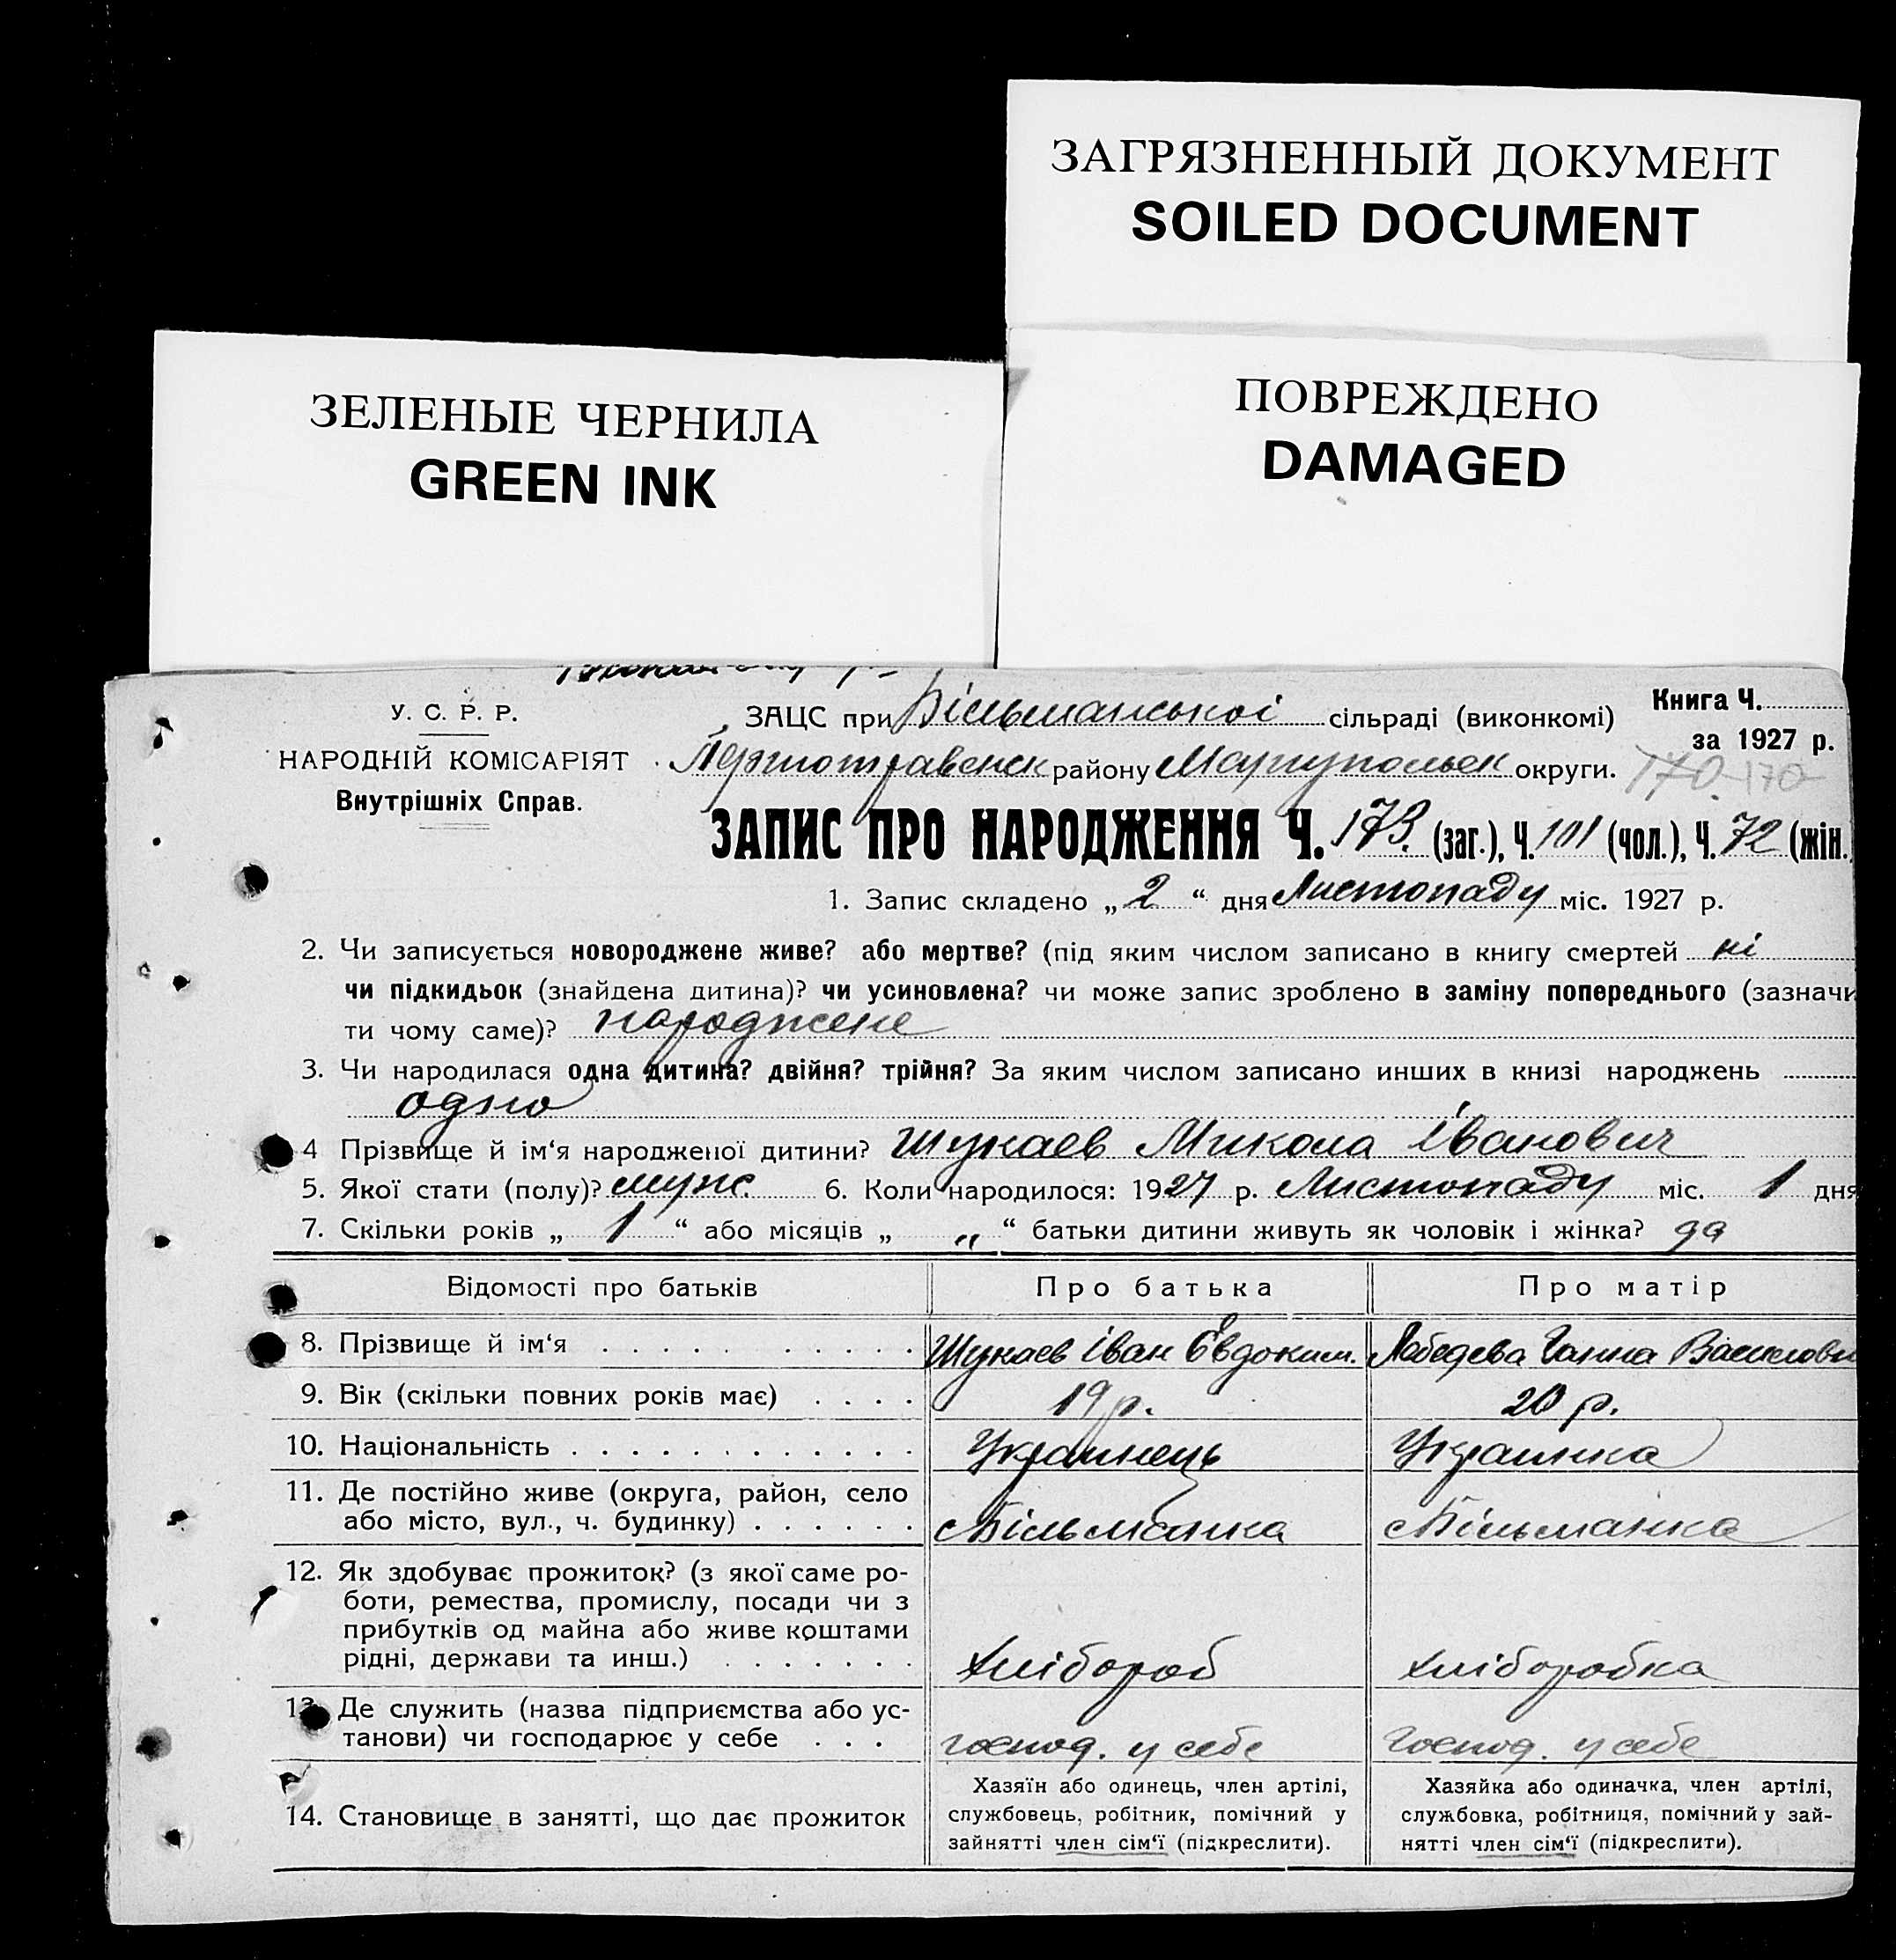 ЗАГРЯЗНЕННЫЙ ДОКУМЕНТ
SOILED DOCUMENT
ЗЕЛЕНЫЕ ЧЕРНИЛА
GREEN INK
ПОВРЕЖДЕНО
DAMAGED
У. С. Р. Р.
НАРОДНІЙ КОМІСАРІЯТ
Внутрішніх Справ.
ЗАЦС при Більманської сільраді (виконкомі)
Книга Ч.
за 1927 р.
Першотравенск району Маріупольск округи. 170 170
ЗАПИС ПРО НАРОДЖЕННЯ Ч. 173. (заг.), Ч. 101 (чол.), Ч. 72 (жін.
1. Запис складено „ 2 “ дня Листопаду міс. 1927 р.
2. Чи записується новороджене живе? або мертве? (під яким числом записано в книгу смертей ні
чи підкидьок (знайдена дитина)? чи усиновлена? чи може запис зроблено в заміну попереднього (зазначи
ти чому саме)? народжене
3. Чи народилася одна дитина? двійня? трійня? За яким числом записано инших в книзі народжень
одно
4 Прізвище й ім‘я народженої дитини? Шукаев Микола Іванович
5. Якої стати (полу)? муж. 6. Коли народилося: 1927 р. Листопаду міс. 1 дня
7. Скільки років „ 1 “ або місяців „ „ “ батьки дитини живуть як чоловік і жінка? да
Відомості про батьків Про батька Про матір
8. Прізвище й ім‘я Шукаев Іван Євдоким. Лебедева Ганна Василовн
9. Вік (скільки повних років має) 19 р. 20 р.
10. Національність Украинець Украинка
11. Де постійно живе (округа, район, село
або місто, вул., ч. будинку) Більманка Більманка
12. Як здобуває прожиток? (з якої саме ро-
боти, ремества, промислу, посади чи з
прибутків од майна або живе коштами
рідні, держави та инш.) хлібороб хліборобка
13. Де служить (назва підприємства або ус-
танови) чи господарює у себе господ. у себе господ. у себе
14. Становище в занятті, що дає прожиток
Хазяїн або одинець, член артілі,
службовець, робітник, помічний у
зайнятті член сім‘ї (підкреслити).
Хазяйка або одиначка, член артілі,
службовка, робітниця, помічний у зай-
нятті член сім‘ї (підкреслити).